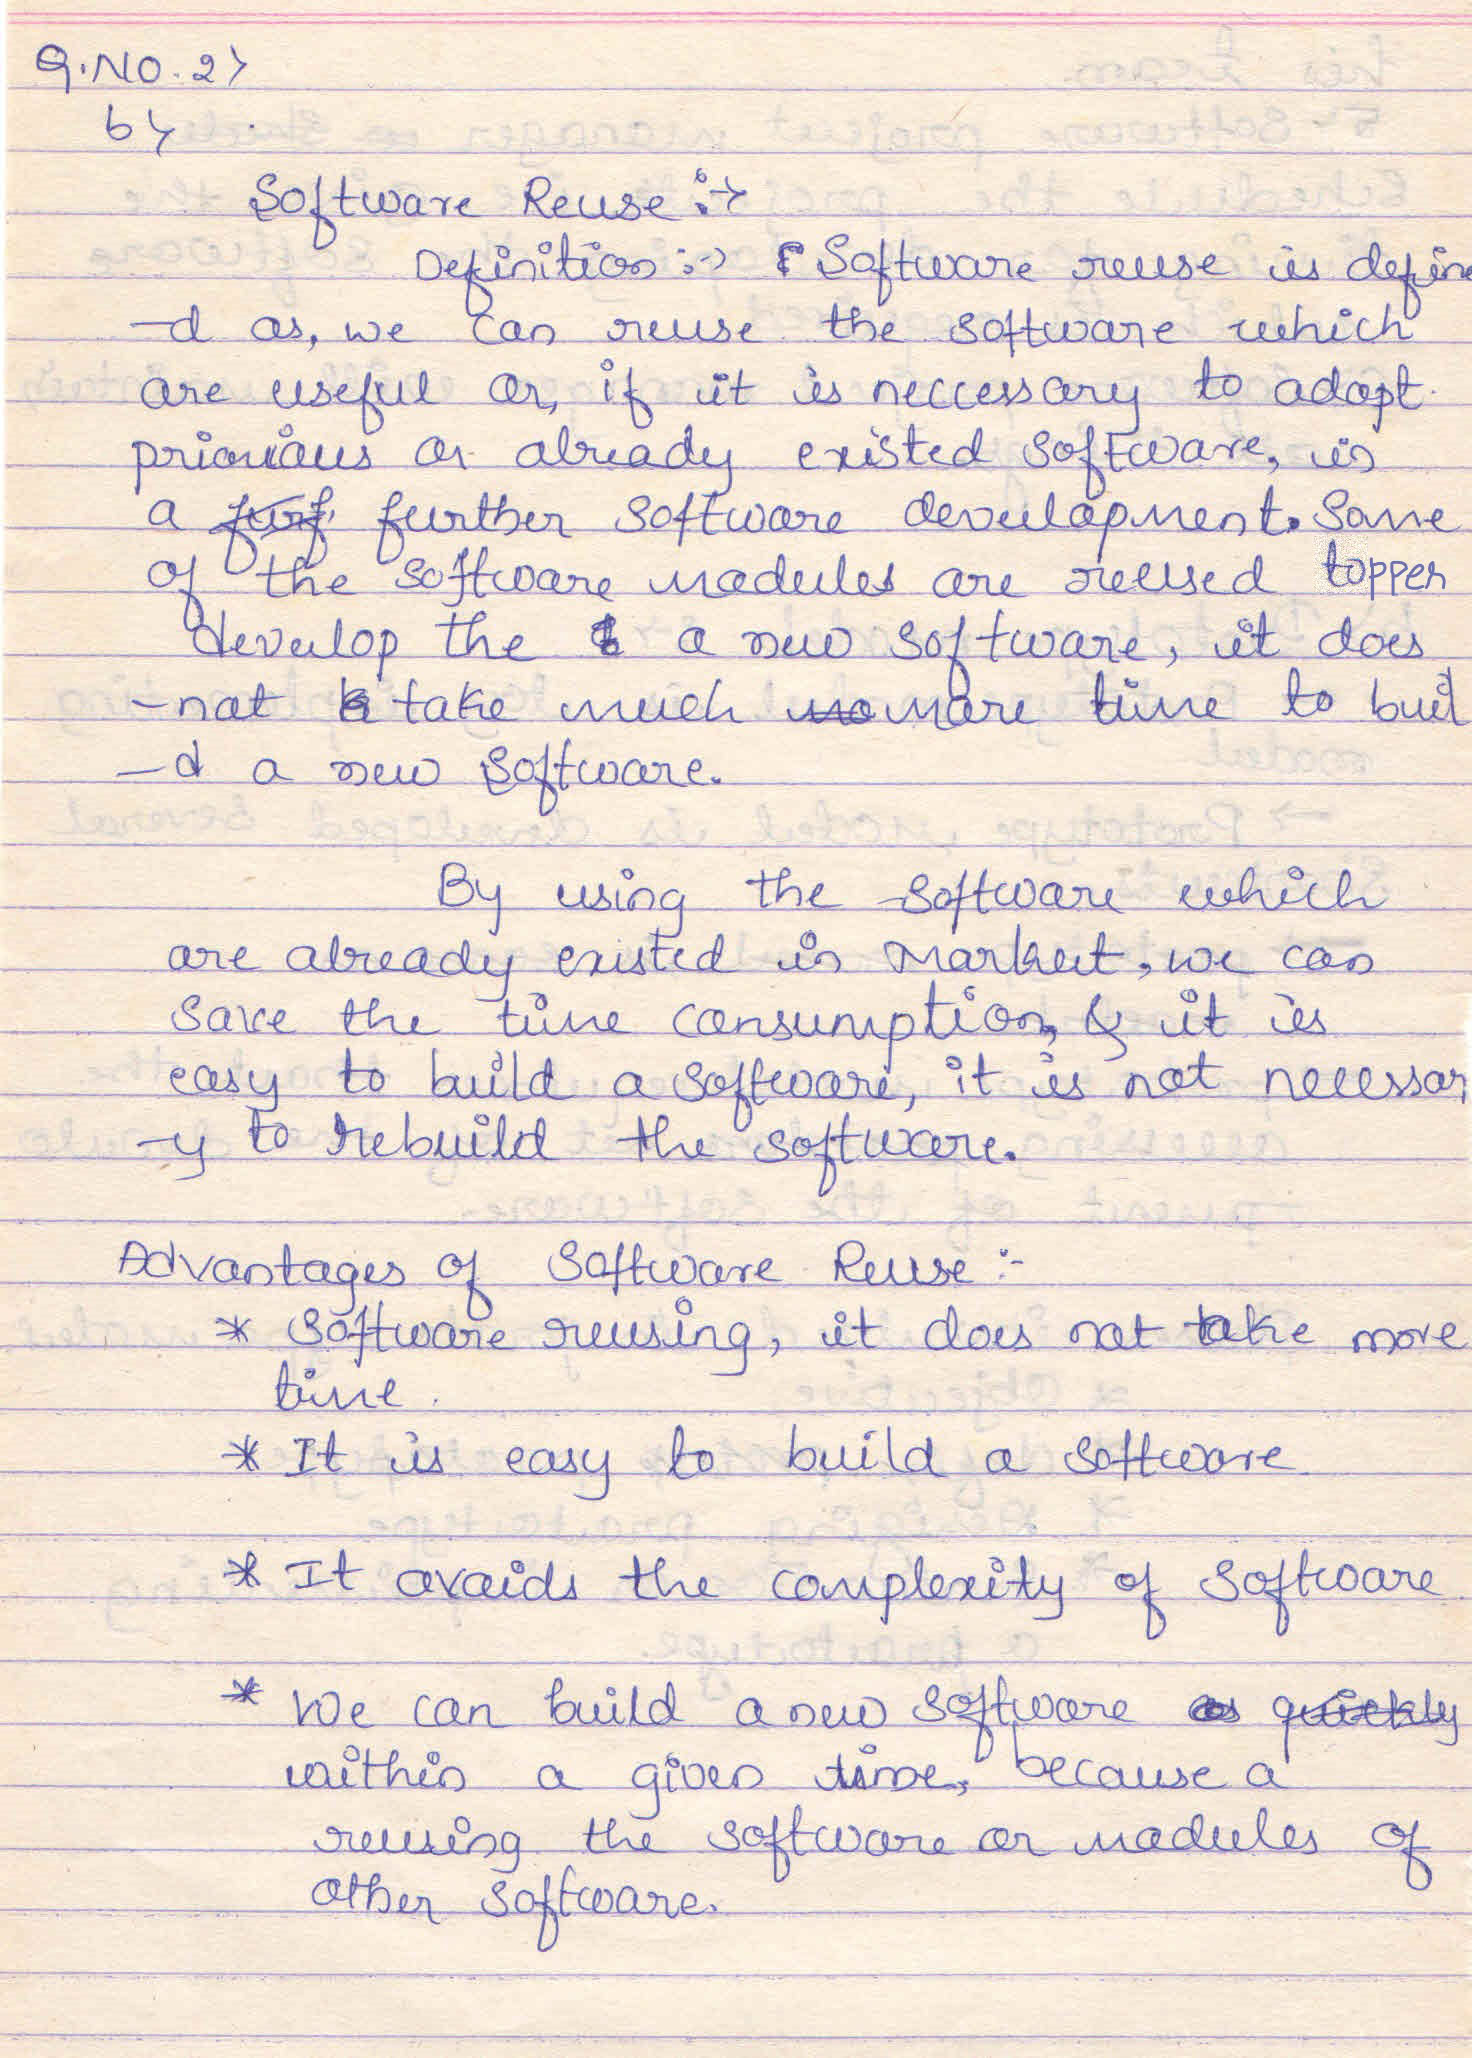 Q.NO.2>
b>
Software Reuse :->
Definition :-> Software reuse is define
-d as, we can reuse the software which
are useful or, if it is neccessary to adopt
privious or already existed software, is
a further software development. Some
of the software modules are reused topper
develop the a new software, it does
-not take much more time to buil
-d a new software.
By using the software which
are already existed in Market, we can
save the time consumption, & it is
easy to build a software, it is not necessar
-y to rebuild the software.
Advantages of Software Reuse :-
* Software reusing, it does not take more
time.
* It is easy to build a software
* It avoids the complexity of software
* We can build a new software as quickly
within a given time, because a
reusing the software or modules of
other software.